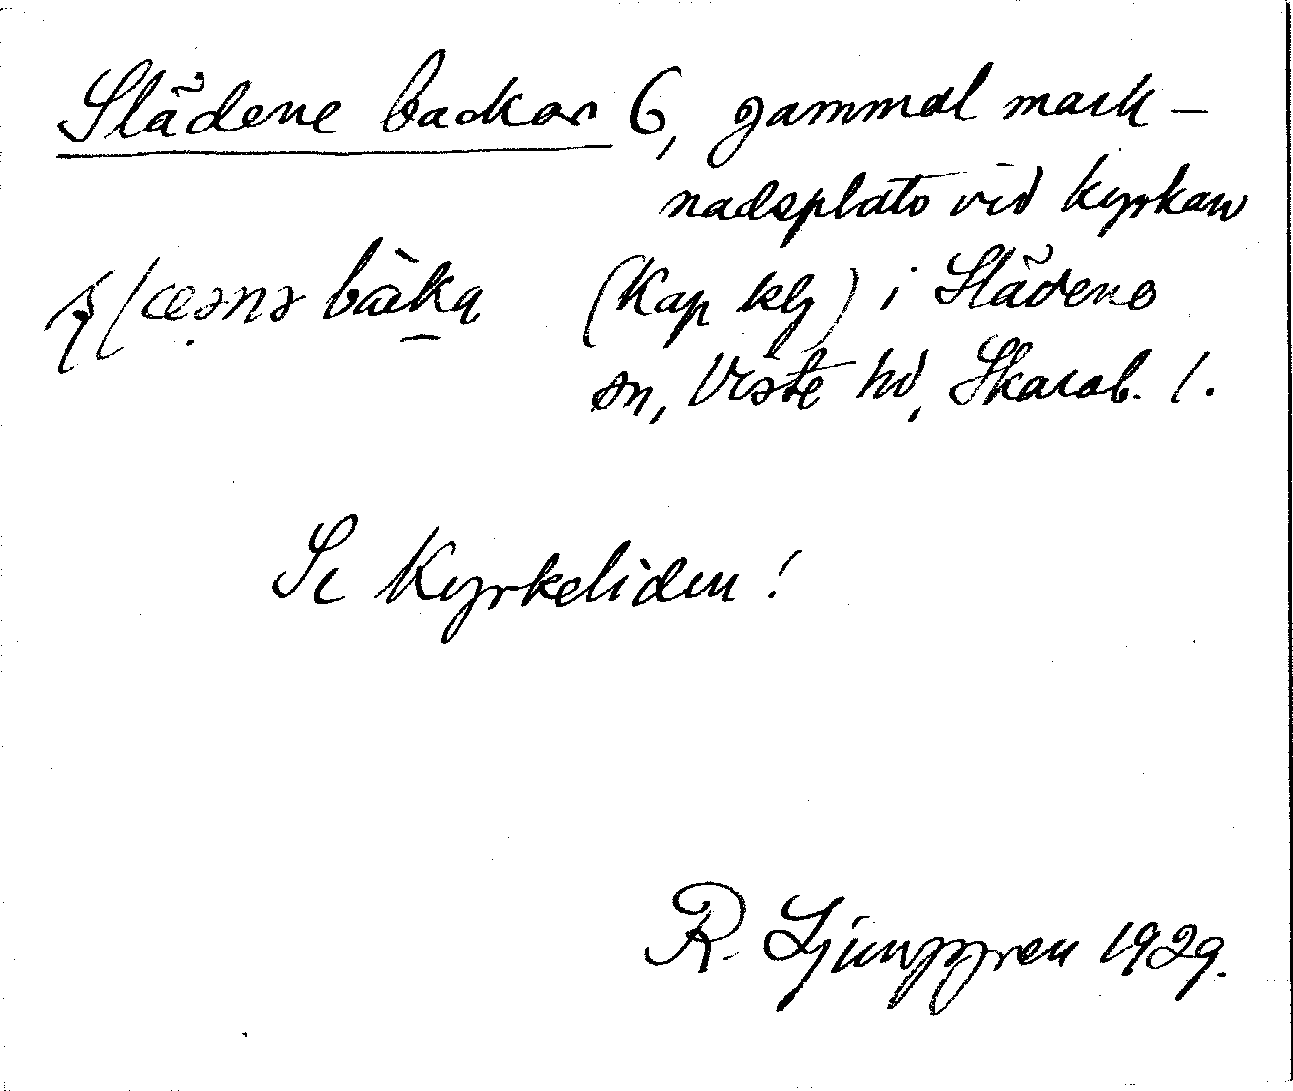 Slädene backar 6, gammal mark-
nadsplats vid kyrkan
bàka (Kap klg) i Slädene
sn, Viste hd, Skarab. l.
Se Kyrkeliden!
R. Ljunggren 1929.